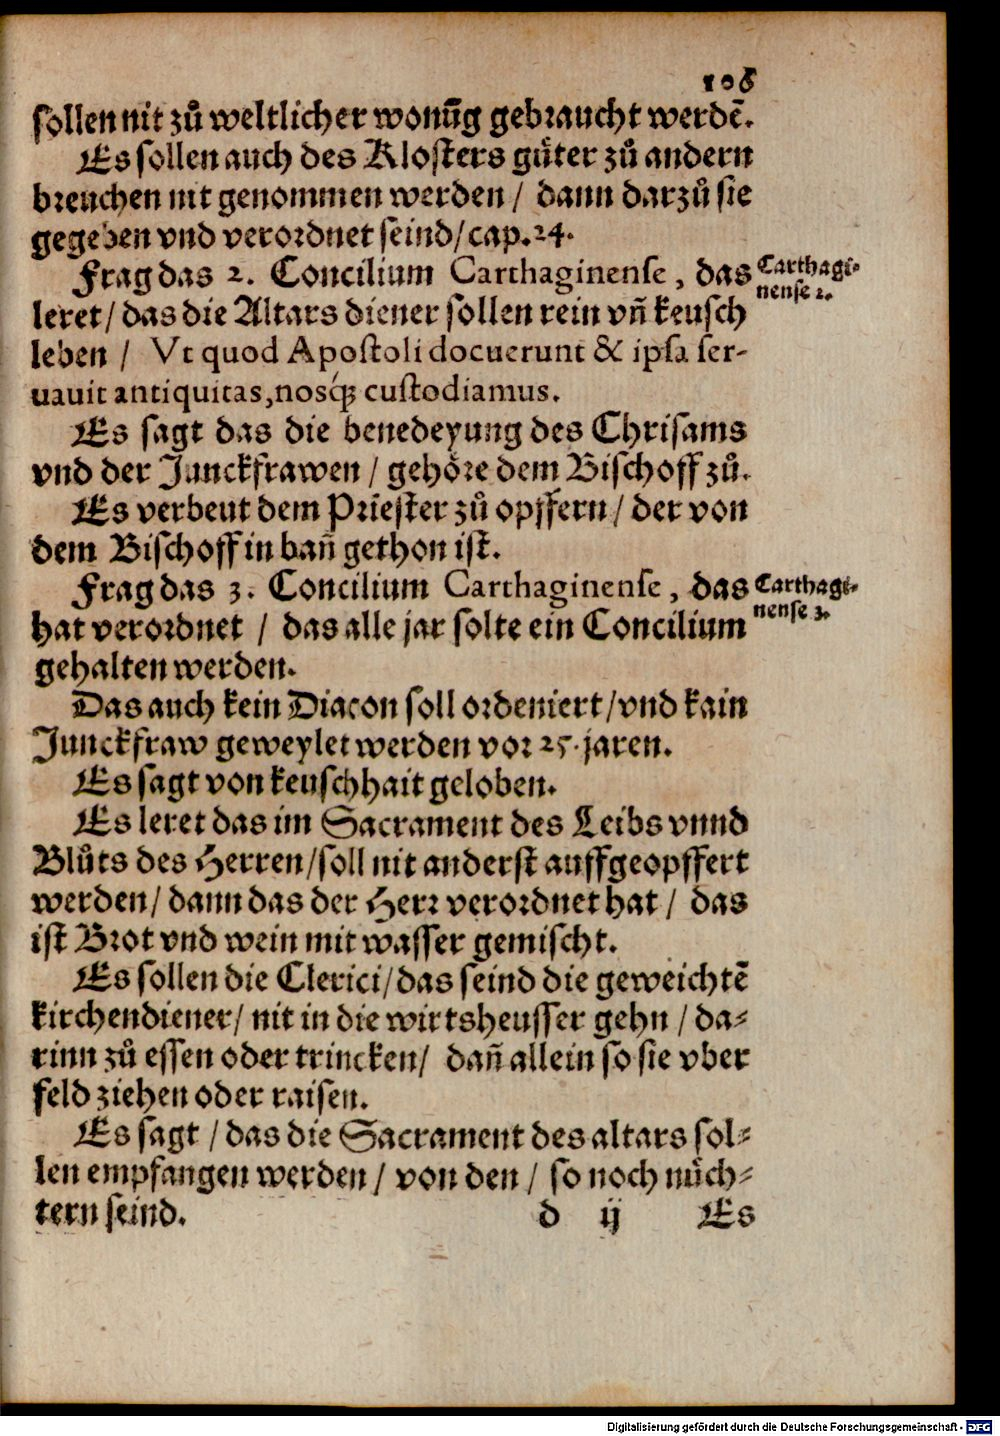 106
sollen nit zů weltlicher wonūg gebraucht werdē.
Es sollen auch des Klosters gůter zů andern
breuchen nit genommen werden / dann darzů sie
gegeben vnd verordnet seind/cap.24.
Frag das 2. Concilium Carthaginense, das
Carthagi-
nense 2.
leret/das die Altars diener sollen rein vñ keusch
leben / Vt quod Apostoli docuerunt & ipsa ser-
uauit antiquitas,nosq́; custodiamus.
Es sagt das die benedeyung des Chrisams
vnd der Junckfrawen / gehőre dem Bischoff zů.
Es verbeut dem Priester zů opffern / der von
dem Bischoff in bañ gethon ist.
Frag das 3. Concilium Carthaginense, das
Carthagi-
nense 3.
hat verordnet / das alle jar solte ein Concilium
gehalten werden.
Das auch kein Diacon soll ordeniert/vnd kain
Junckfraw geweylet werden vor 25.jaren.
Es sagt von keuschhait geloben.
Es leret das im Sacrament des Leibs vnnd
Blůts des Herren/soll nit anderst auffgeopffert
werden/ dann das der Herr verordnet hat / das
ist Brot vnd wein mit wasser gemischt.
Es sollen die Clerici/das seind die geweichtē
kirchendiener/ nit in die wirtsheusser gehn / da-
rinn zů essen oder trincken/ dañ allein so sie vber
feld ziehen oder raisen.
Es sagt / das die Sacrament des altars sol-
len empfangen werden / von den / so noch nůch-
tern seind.
d ij Es
Digitalisierung gefördert durch die Deutsche Forschungsgemeinschaft - DFG